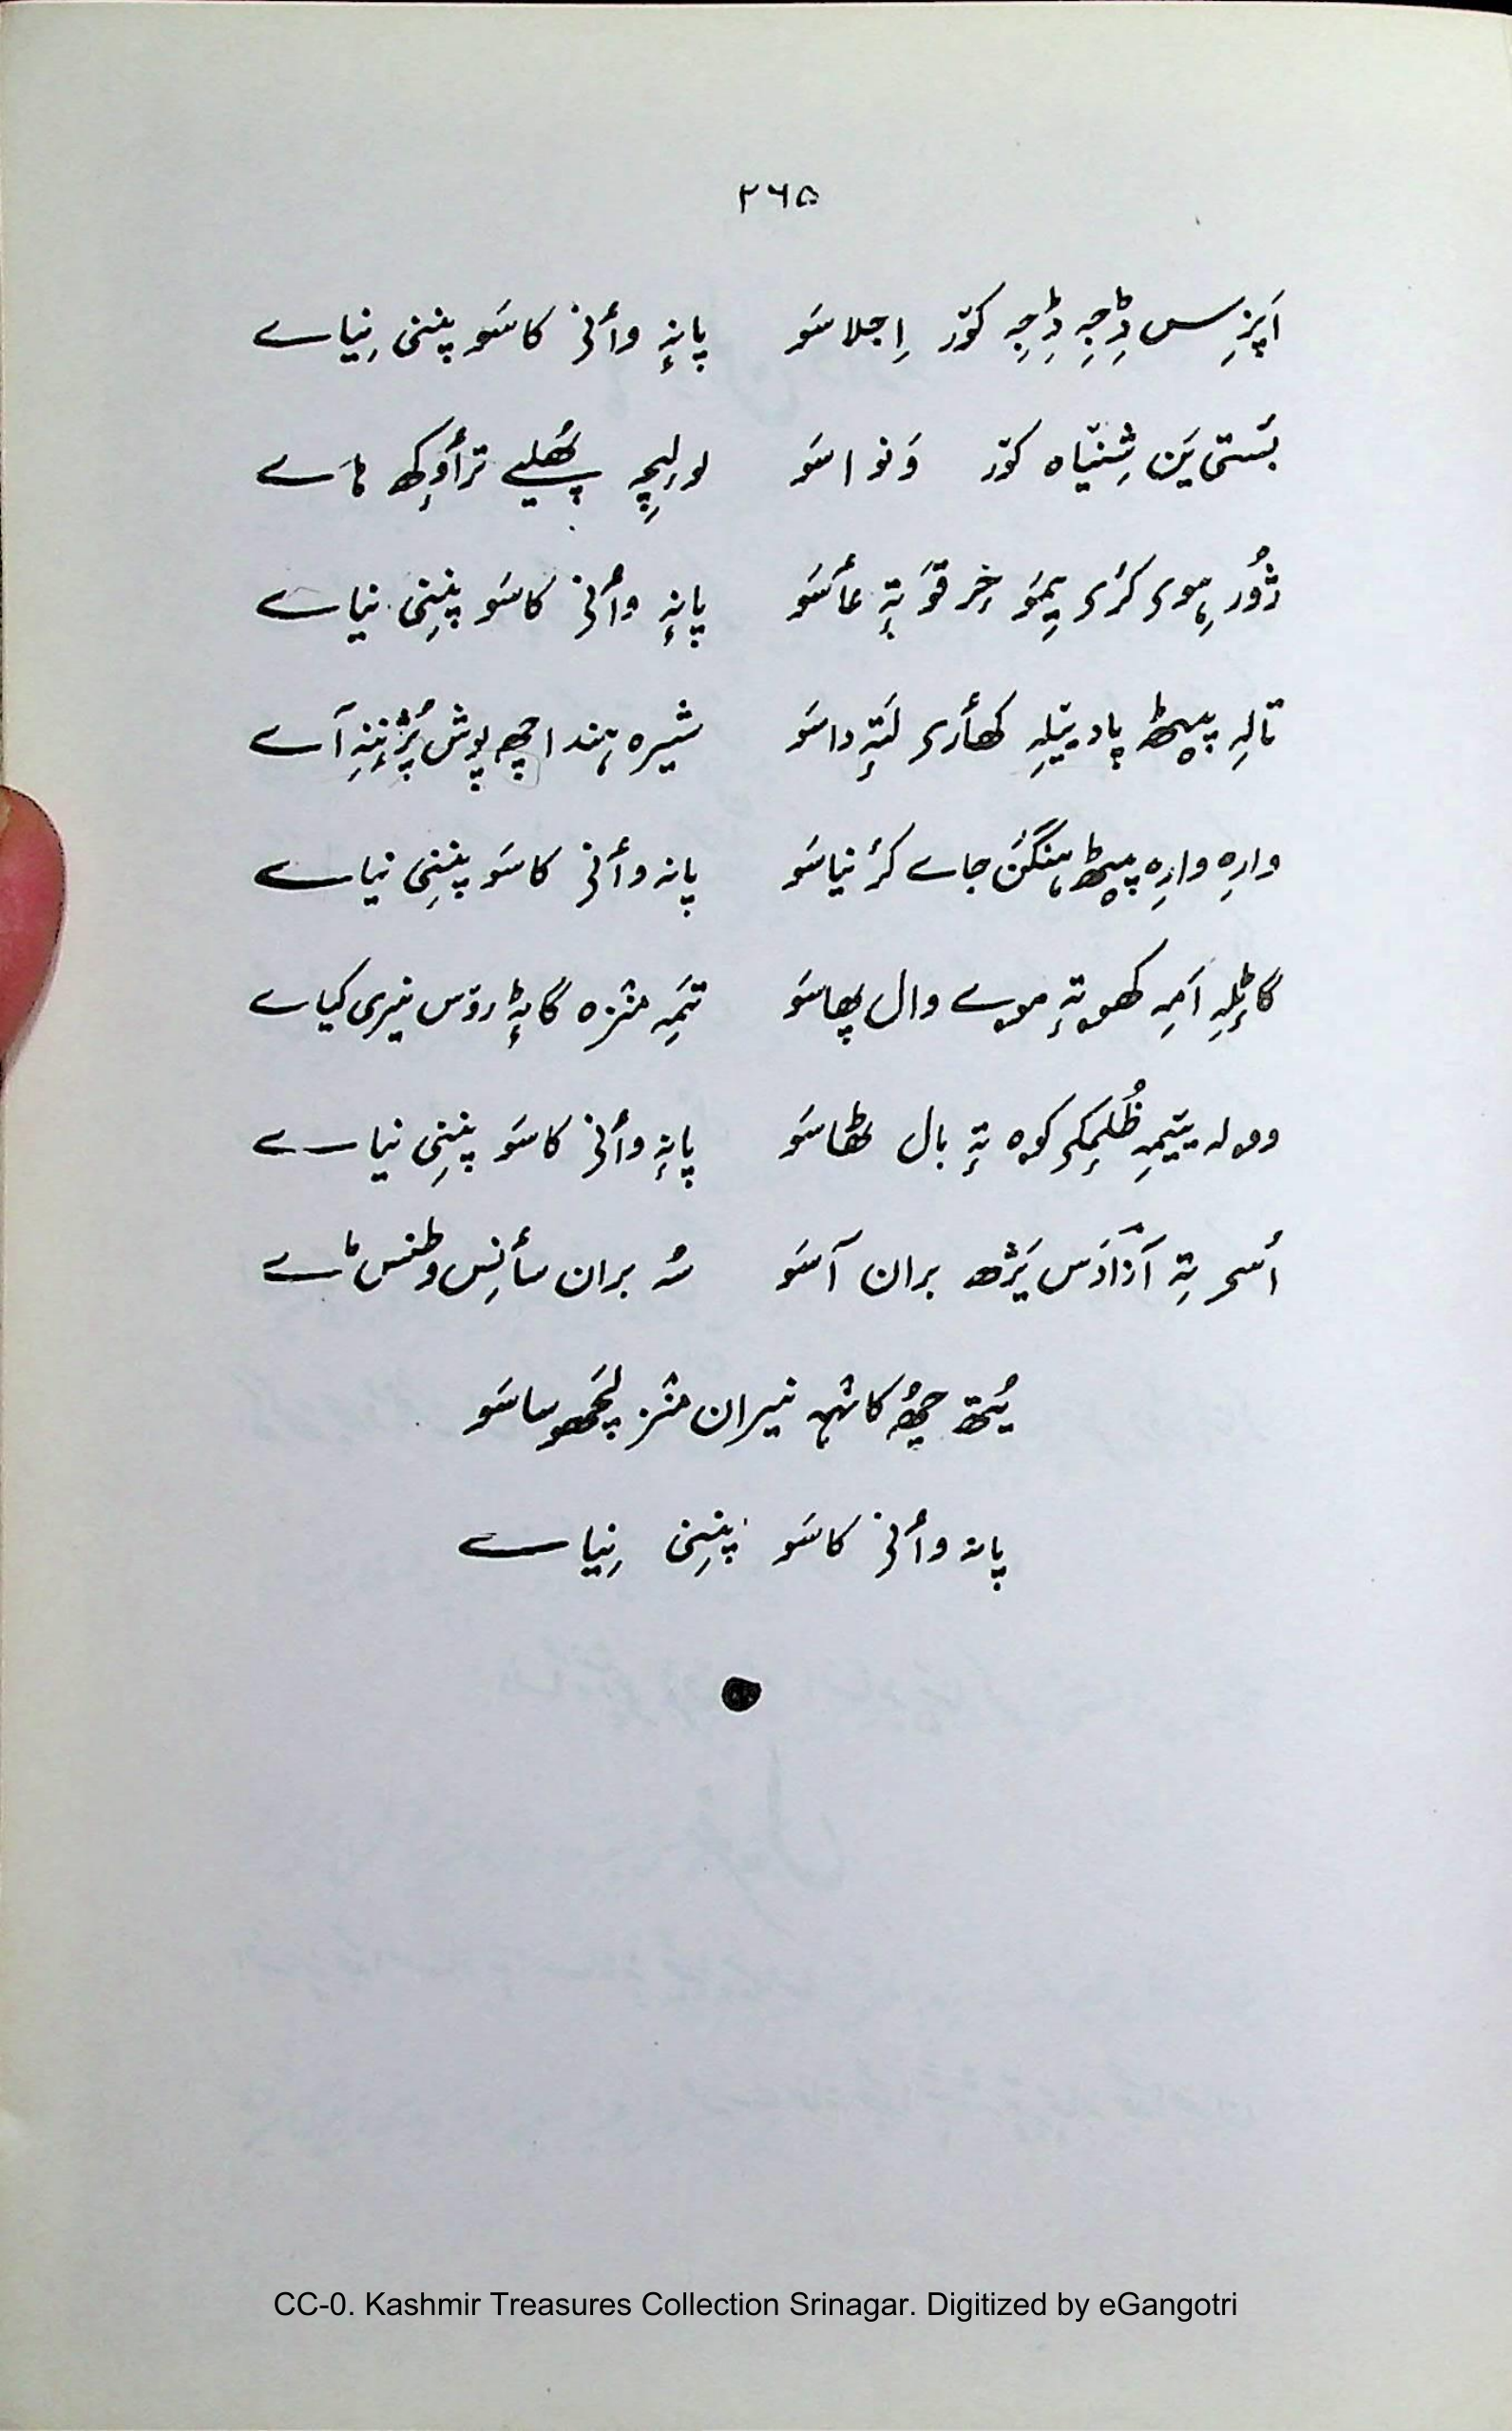 ۲۶۵
اَپزِس دٕجہِ دٕجہِ کوٚر اِجلاسَو پانہٕ وأنۍ کاسَو پننی نِیاے
بَستی یَن شِنیاہ کوٚر وَنواسَو لولچہِ پھُلیے ترأوِکھ ہاے
ژوٗر ہِوۍ کرۍ یِمَو خِرقوَ تہٕ عأسَو پانہٕ وأنۍ کاسَو پننِی نیاے
تالہِ پیٹھ پاد یتلہِ کھأرۍ لتہٕ داسَو شیرہ ہند اچھ پوش پُژنِنہِ آے
وارِہ وارِہ پیٹھ ہنگن جاے کرٔ نیاسَو پانہ وأنۍ کاسَو پننِی نیاے
گاٹِلہِ اَمہِ کھوتہٕ موے وال پھاسَو تمَہِ منزہ گاٹہٕ روٚس نیری کیاے
وولہ یتیمہِ ظُلمِکۍ کوہ تہٕ بال ٹھاسَو پانہٕ وأنۍ کاسَو پننِی نیاے
اُسی تہِ آزادَس یَژھ بران آسَو سُہ بران سأنِس وطنس ماے
یُتھ چھُ کاشہِ نیران منز لچھَو ساسَو
پانہ وأنۍ کاسَو پننِی نِیاے
CC-0. Kashmir Treasures Collection Srinagar. Digitized by eGangotri